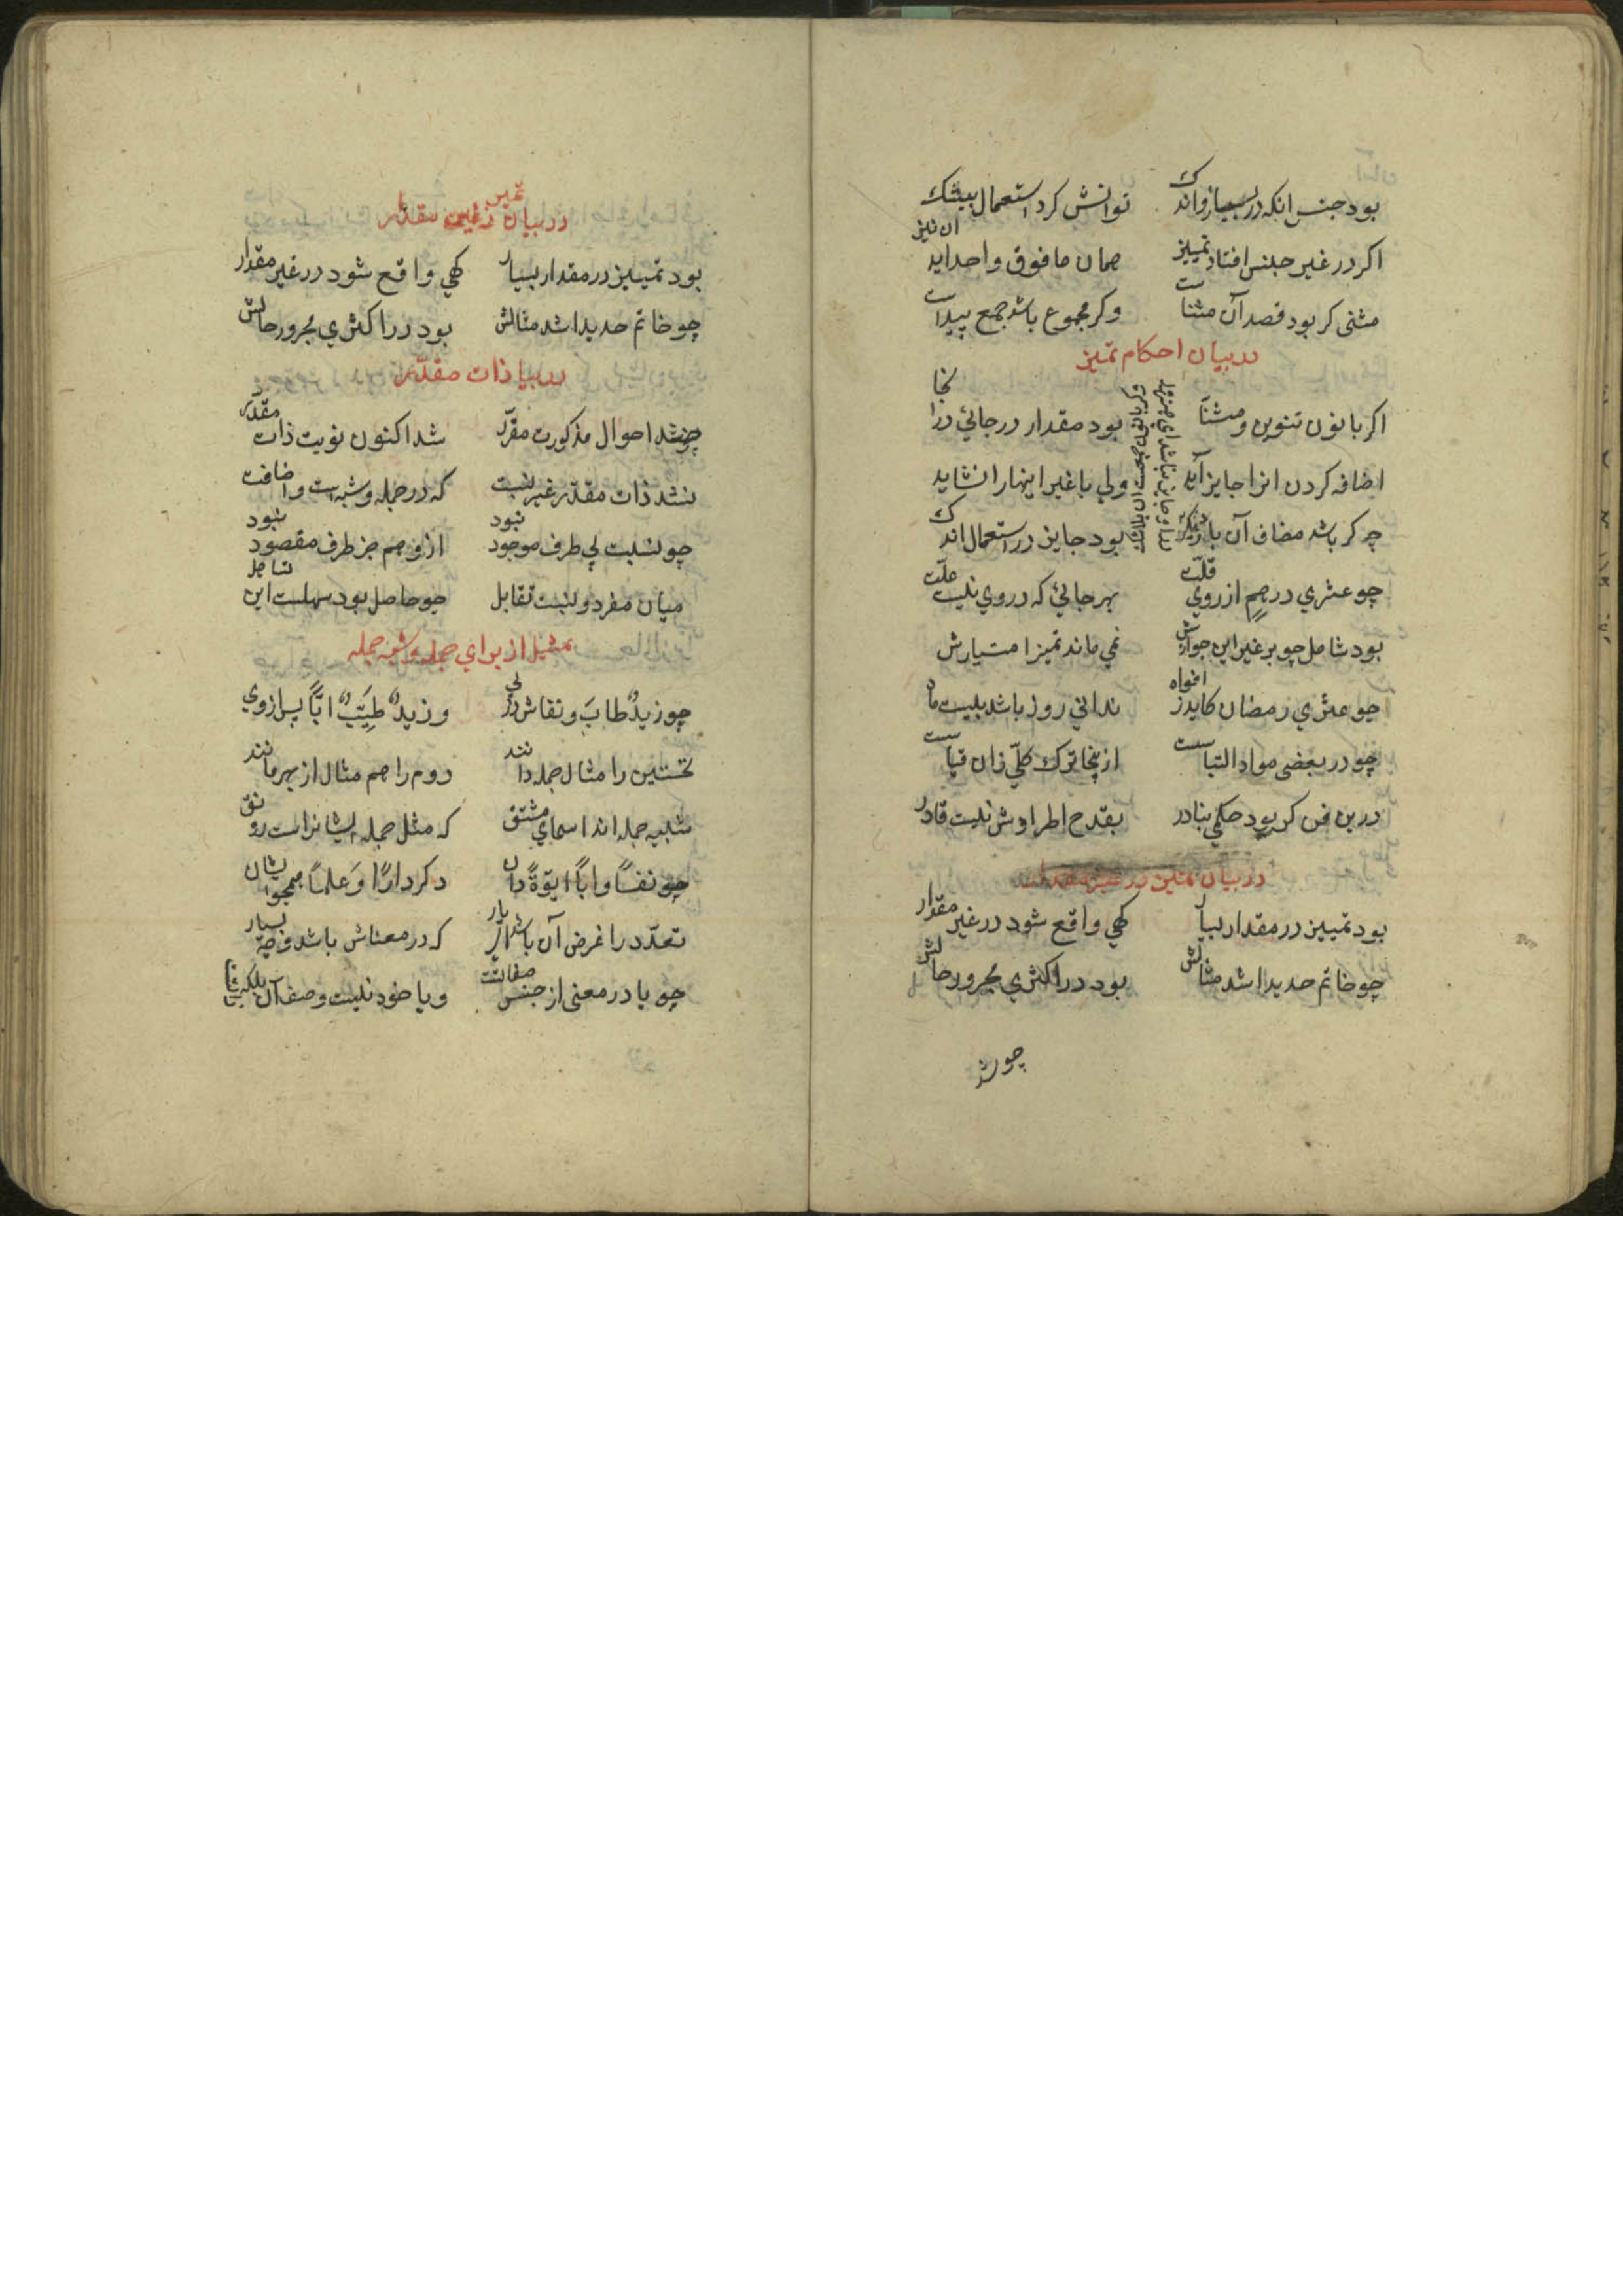 بود جنس انکه در بسیار و اندک توانش کرد استعمال بیشک
اکر در غیر جنس افتاد تمییز همان مافوق واحد اید ان نیز
مثنی کر بود قصد آن مثناست وکر مجموع باشد جمع پیداست
در بیان احکام تمیز
اکر با نون تنوین و مثنآ بود مقدار در جائی در انجا
اضافه کردن انرا جایز آید ولی با غیر اینها را نشاید
چه کر باشد مضاف آن بار دیکر بود جایز در استعمال اندک
چو عشری درهمٍ از روی قلّت بهر جائی که در وی نیست علّت
بود شامل چو بر غیر این جوازش نمی ماند تمیز امتیازش
چو عشری رمضان کاید ز افواه ندانی روز باشد بیست ماه
چو در بعضی مواد التباسست ازینجا ترک کلّی زان قیاسست
درین فن کر بود حکمی بنادر بقدح اطرادش نیست قادر
در بیان تمییز در غیر مقدار
بود تمییز در مقدار بسیار کهی واقع شود در غیر مقدار
چو خاتم حدیدا شد مثالش بود در اکثری مجرور حالش
چو شد
در بیان تمییز در غیر مقدار
بود تمییز در مقدار بسیار کهی واقع شود در غیر مقدار
چو خاتم حدیدا شد مثالش بود در اکثری مجرور حالش
در بیا ذات مقدّر
چو شد احوال مذکورت مقرّر شد اکنون نوبت ذات مقدّر
نشد ذات مقدّر غیر نسبت که در جمله و شبه است و اضافت
چو نسبت بی طرف موجود نبود ازو هم جز طرف مقصود نبود
میان مفرد و نسبت تقابل چو حاصل بود سهلست این تساهل
تمثیل از برای جمله و شبه جمله
چو زیدٌ طابَ و نفاش در پی و زیدٌ طیّبٌ ابًّا پس از وی
نخستین را مثال جمله دانند دوم را هم مثال از بهر مانند
شبیه جمله اند اسمای مشتق که مثل جمله ایشانراست رونق
چو نفسًا و ابًا ابوّةً دان دکر دارًا وَ علمًا همچو ایشان
تعدّد را غرض آن باشد ای یار که در معناش باشد وجه بسیار
چو یا در معنی از جنس صفاتست و یا خود نیست وصف آن بلکه